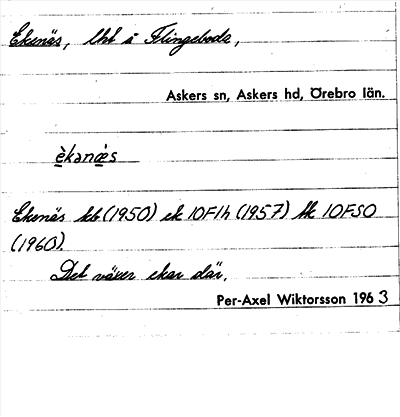 Ekenäs, lht i Flingeboda,
Askers sn, Askers hd, Örebro län.
èkanæ̀s
Ekenäs kb (1950) ek 10F1h (1957) tk 10FSO
(1960).
Det växer ekar där.
Per-Axel Wiktorsson 1963